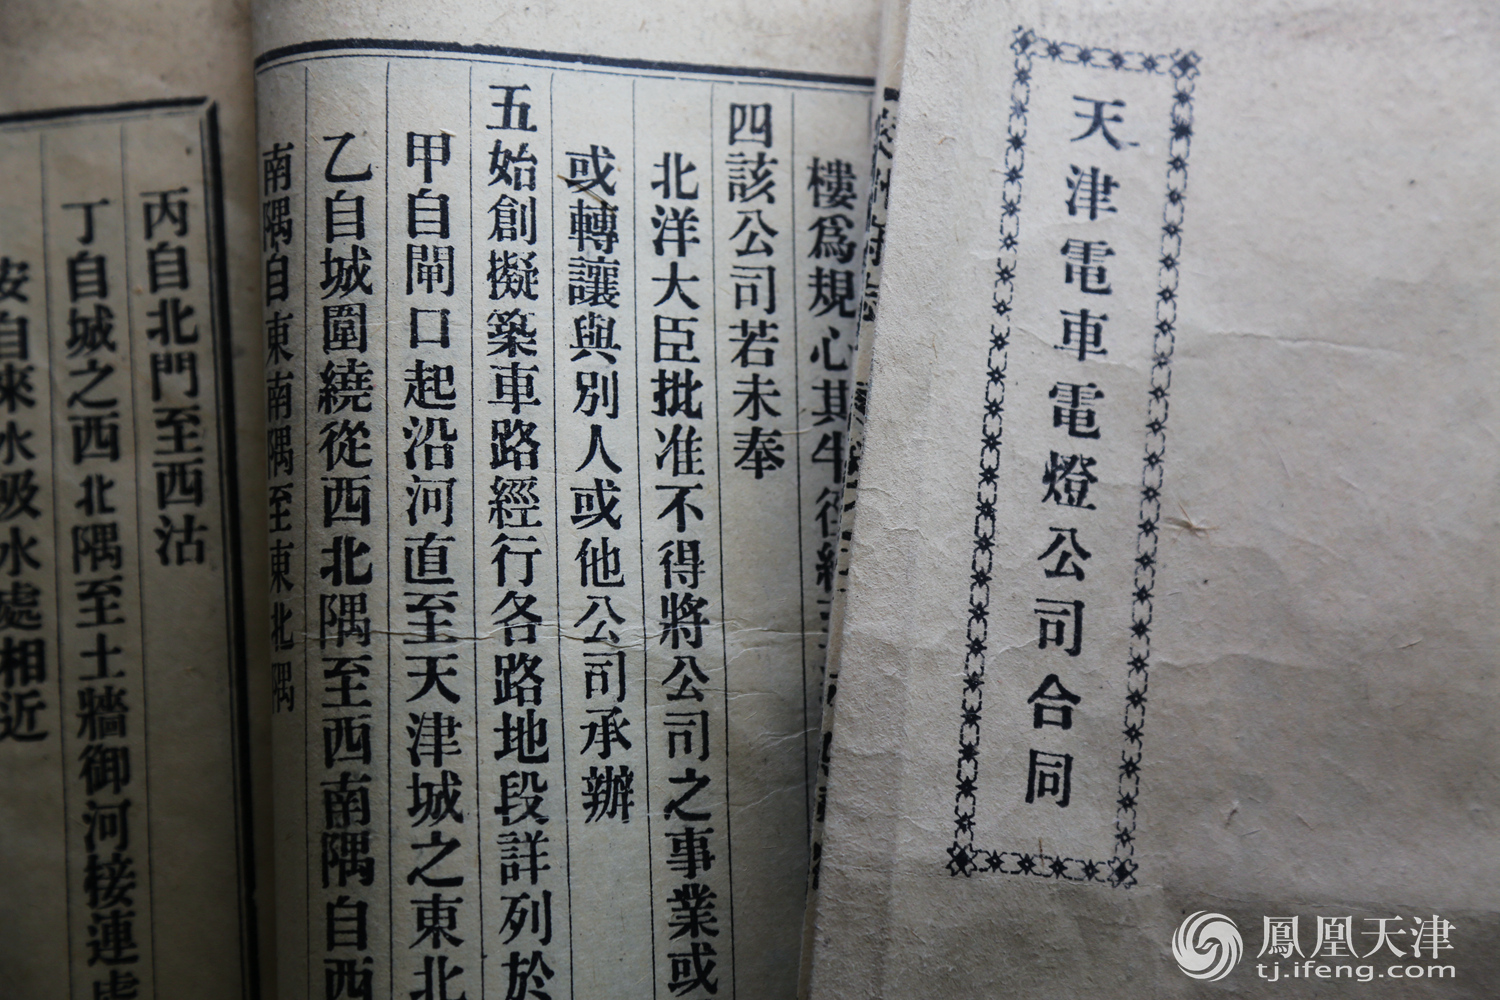 天津電車電燈公司合同
樓爲規心其牛徑
四該公司若未奉
北洋大臣批准不得將公司之事業或
或轉讓與別人或他公司承辦
五始創擬築車路經行各路地段詳列於
甲自閘口起沿河直至天津城之東北
乙自城圍繞從西北隅至西南隅自西
南隅自東南隅至東北隅
丙自北門至西沽
丁自城之西北隅至土牆御河接連處
安自來水吸水處相近
鳳凰天津
tj.ifeng.com